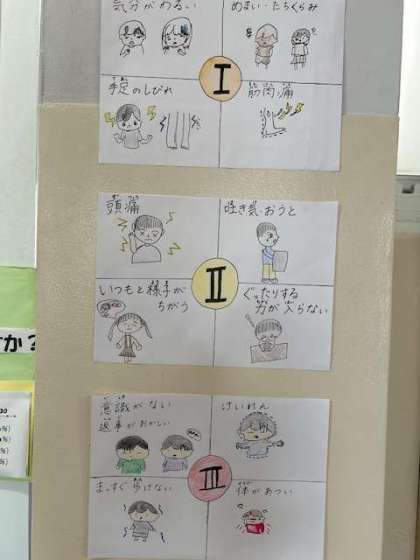 気分がわるい
めまい・たちくらみ
手足のしびれ
筋肉痛
I
頭痛
吐き気・おうと
いつもと様子が
ちがう
ぐったりする
力が入らない
II
意識がない
返事がおかしい
けいれん
まっすぐ歩けない
体があつい
III
すか?